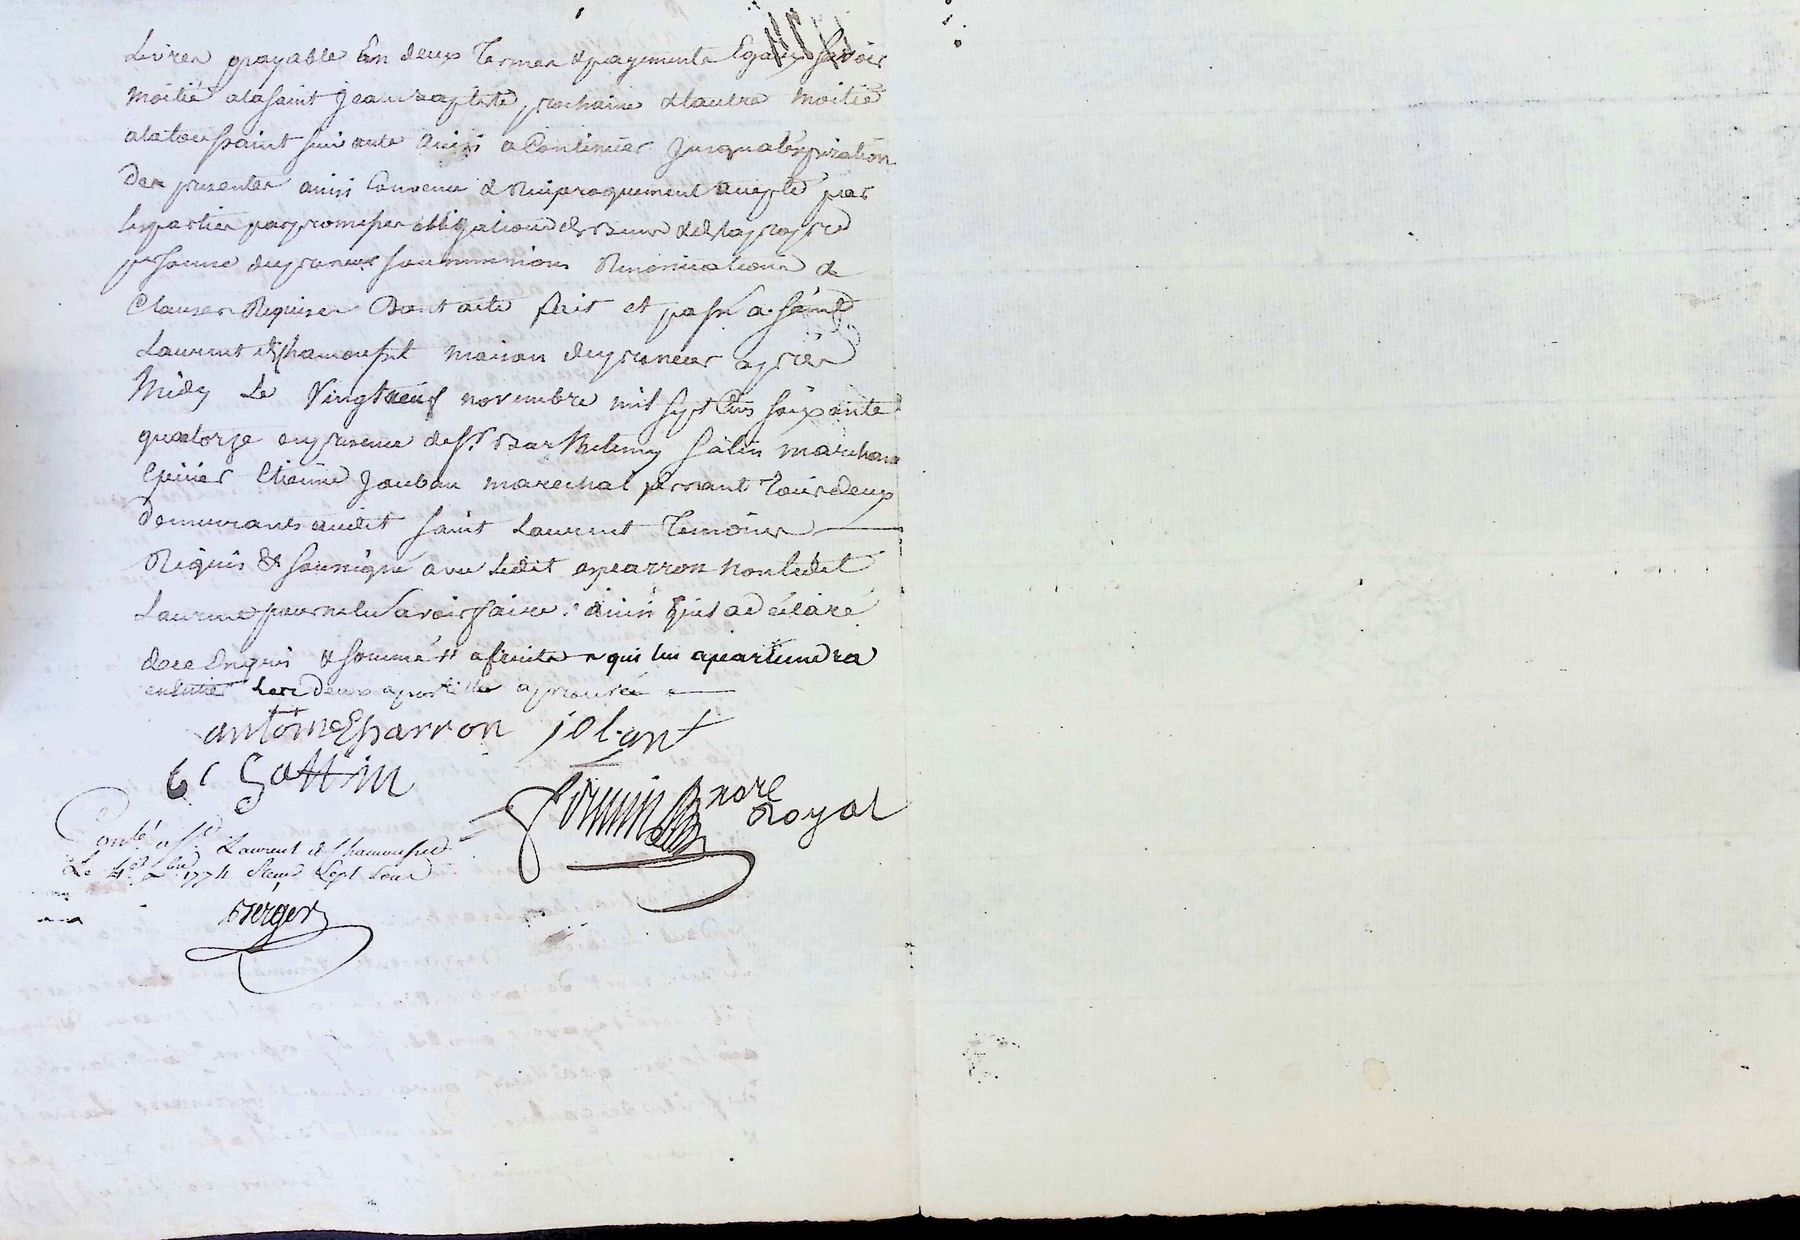 Livres payable En deux Termes & payements Egaux Savoir
Moitié a la Saint Jean Baptiste prochaine & lautre Moitié
a la toussaint suivante ainsi a Continuer Jusqualexpiration
Des presentes ainsi Convenu & Reciproquement accepté par
les parties par promesses obligations de & de
personne des preneurs soummissions Renonciations &
Clauses Requises Dont acte fait et passé a Saint
Laurent de Chamousset maison du preneur après
Midy Le Vingt neuf novembre mil sept Cens soixante
quatorze en presence de Sr. Barthelemy Satin marchand
Epicier Etienne Jouban marechal ferrant Tous deux
demeurants audit Saint Laurent Temoins
Requis & soussigné avec ledit esparron non ledit
Laurent pour ne le savoir faire ainsi quil a déclaré
de ce Enquis & sommé a qui lui apartiendra
Les deux apostilles aprouvée
antoine Esparron
Sattin
nore Royal
Conlé. a St. Laurent de Chamousset
Le 1774 Sept sous
Berger